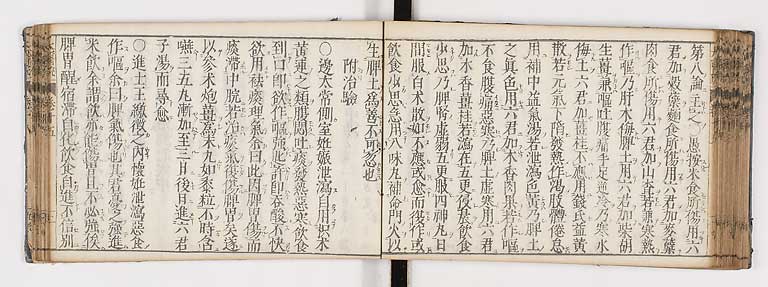 第八論主之〇愚按米食所傷用六
君加穀蘖麵食所傷用六君加麥蘖
肉食所傷用六君加山査若兼寒熱
作嘔乃肝木侮脾土用六君加柴胡
生薑兼嘔吐腹痛手足逆冷乃寒水
侮土六君加薑桂不應用錢氏益黃
散若元氣下陷發熱作渴肢體倦怠
用補中益氣湯若泄瀉色黃乃脾土
之眞色用六君加木香肉果若作嘔
不食腹痛惡寒乃脾土虛寒用六君
加木香薑桂若瀉在五更侵晨飲食
少思乃脾腎虛弱五更服四神丸日
間服白朮散如不應或愈而復作或
飲食少思急用八味丸補命門火以
生脾土爲善不可忽也
附治驗
〇邊太常側室妊娠泄瀉自用枳朮
黃連之類腹悶吐痰發熱惡寒飲食
到口卽欲作嘔強匙許卽吞酸不快
欲用袪痰理氣余曰此因脾胃傷而
痰滯中脘若治痰氣復傷脾胃矣遂
以參朮炮薑爲末丸如黍粒不時含
嚥三五丸漸加至三十丸後日進六君
子湯而尋愈
〇進士王繳徵之內懷妊泄瀉惡食
作嘔余曰脾氣傷也其君憂之強進
米飲余謂飲亦能傷胃且不必強俟
脾胃醒宿滯自化飲食自進不信別